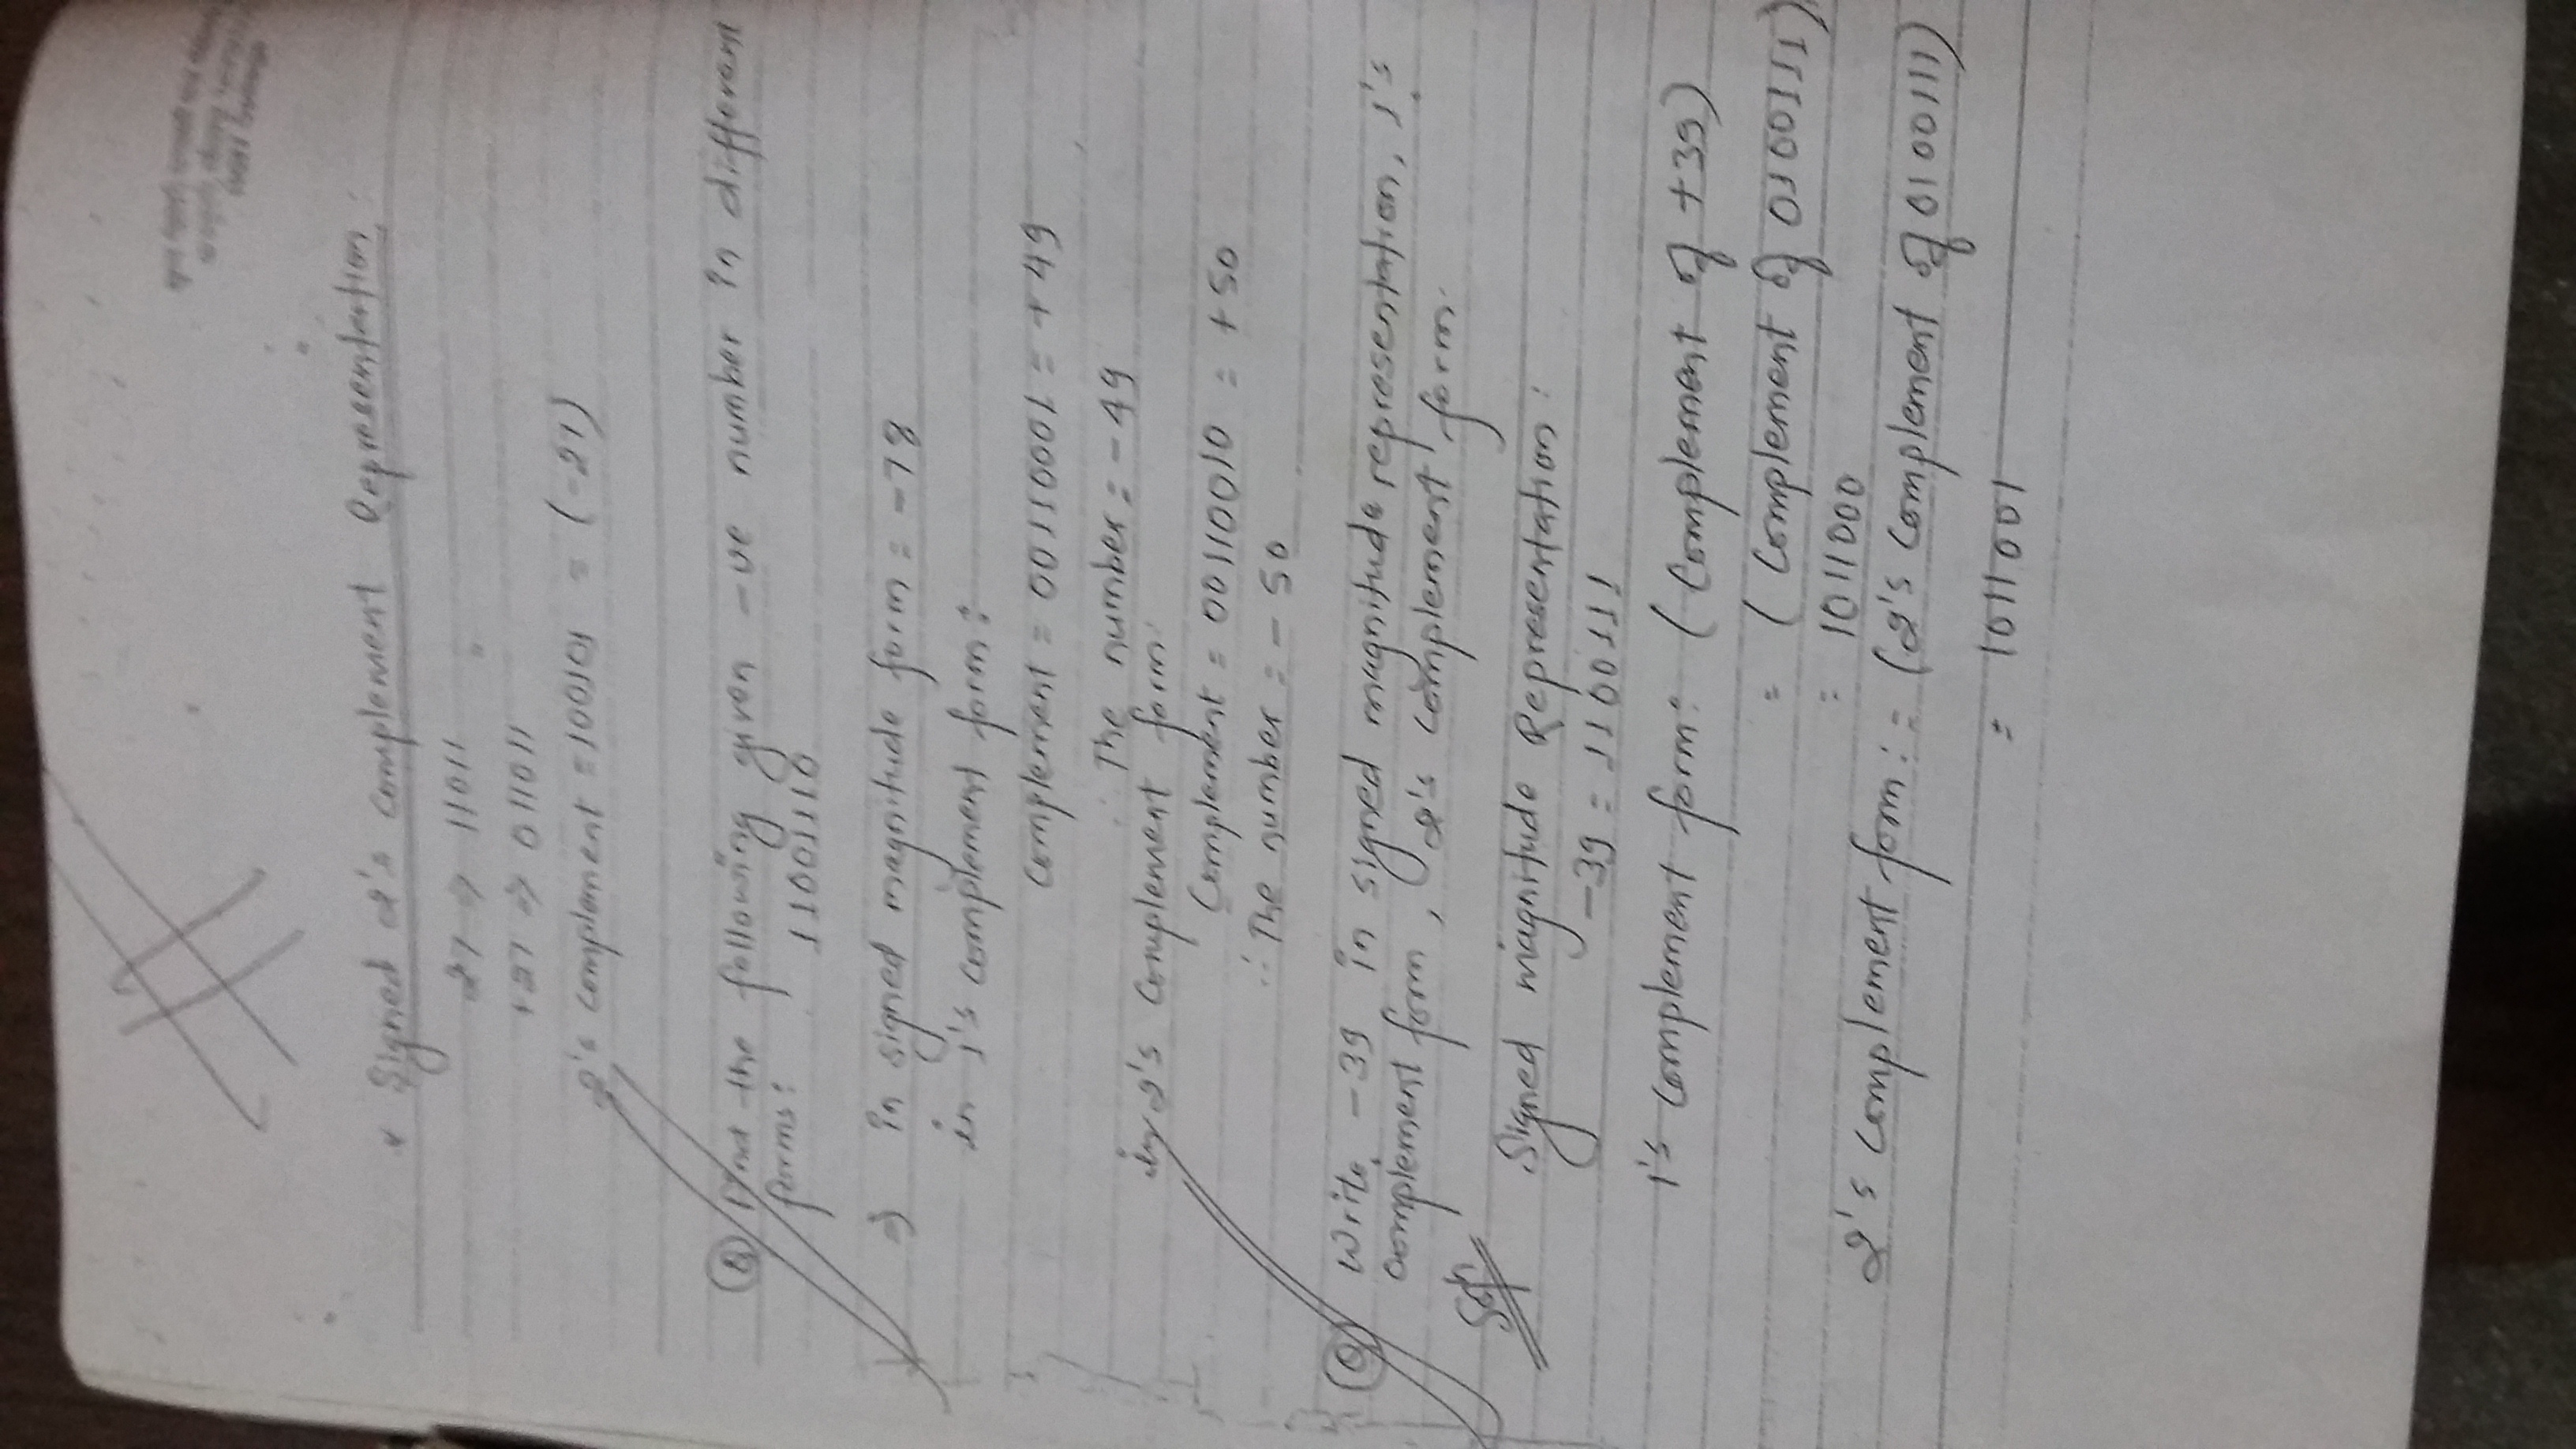 * Signed 2's complement Representation:
27 ⇒ 11011
+27 ⇒ 011011
2's complement = 100101 = (-27)
Q Find the following given -ve number in different
forms:
11001110
⇒ in signed magnitude form = -78
in 1's complement form:
Complement = 00110001 = +49
∴ The number = -49
in 2's complement form:
Complement = 00110010 = +50
∴ The number = -50
Q Write -39 in signed magnitude representation, 1's
complement form, 2's complement form.
Solⁿ
Signed magnitude Representation:
-39 = 1100111
1's complement form: (Complement of +39)
= (Complement of 0100111)
= 1011000
2's complement form: = (2's complement of 0100111)
= 1011001